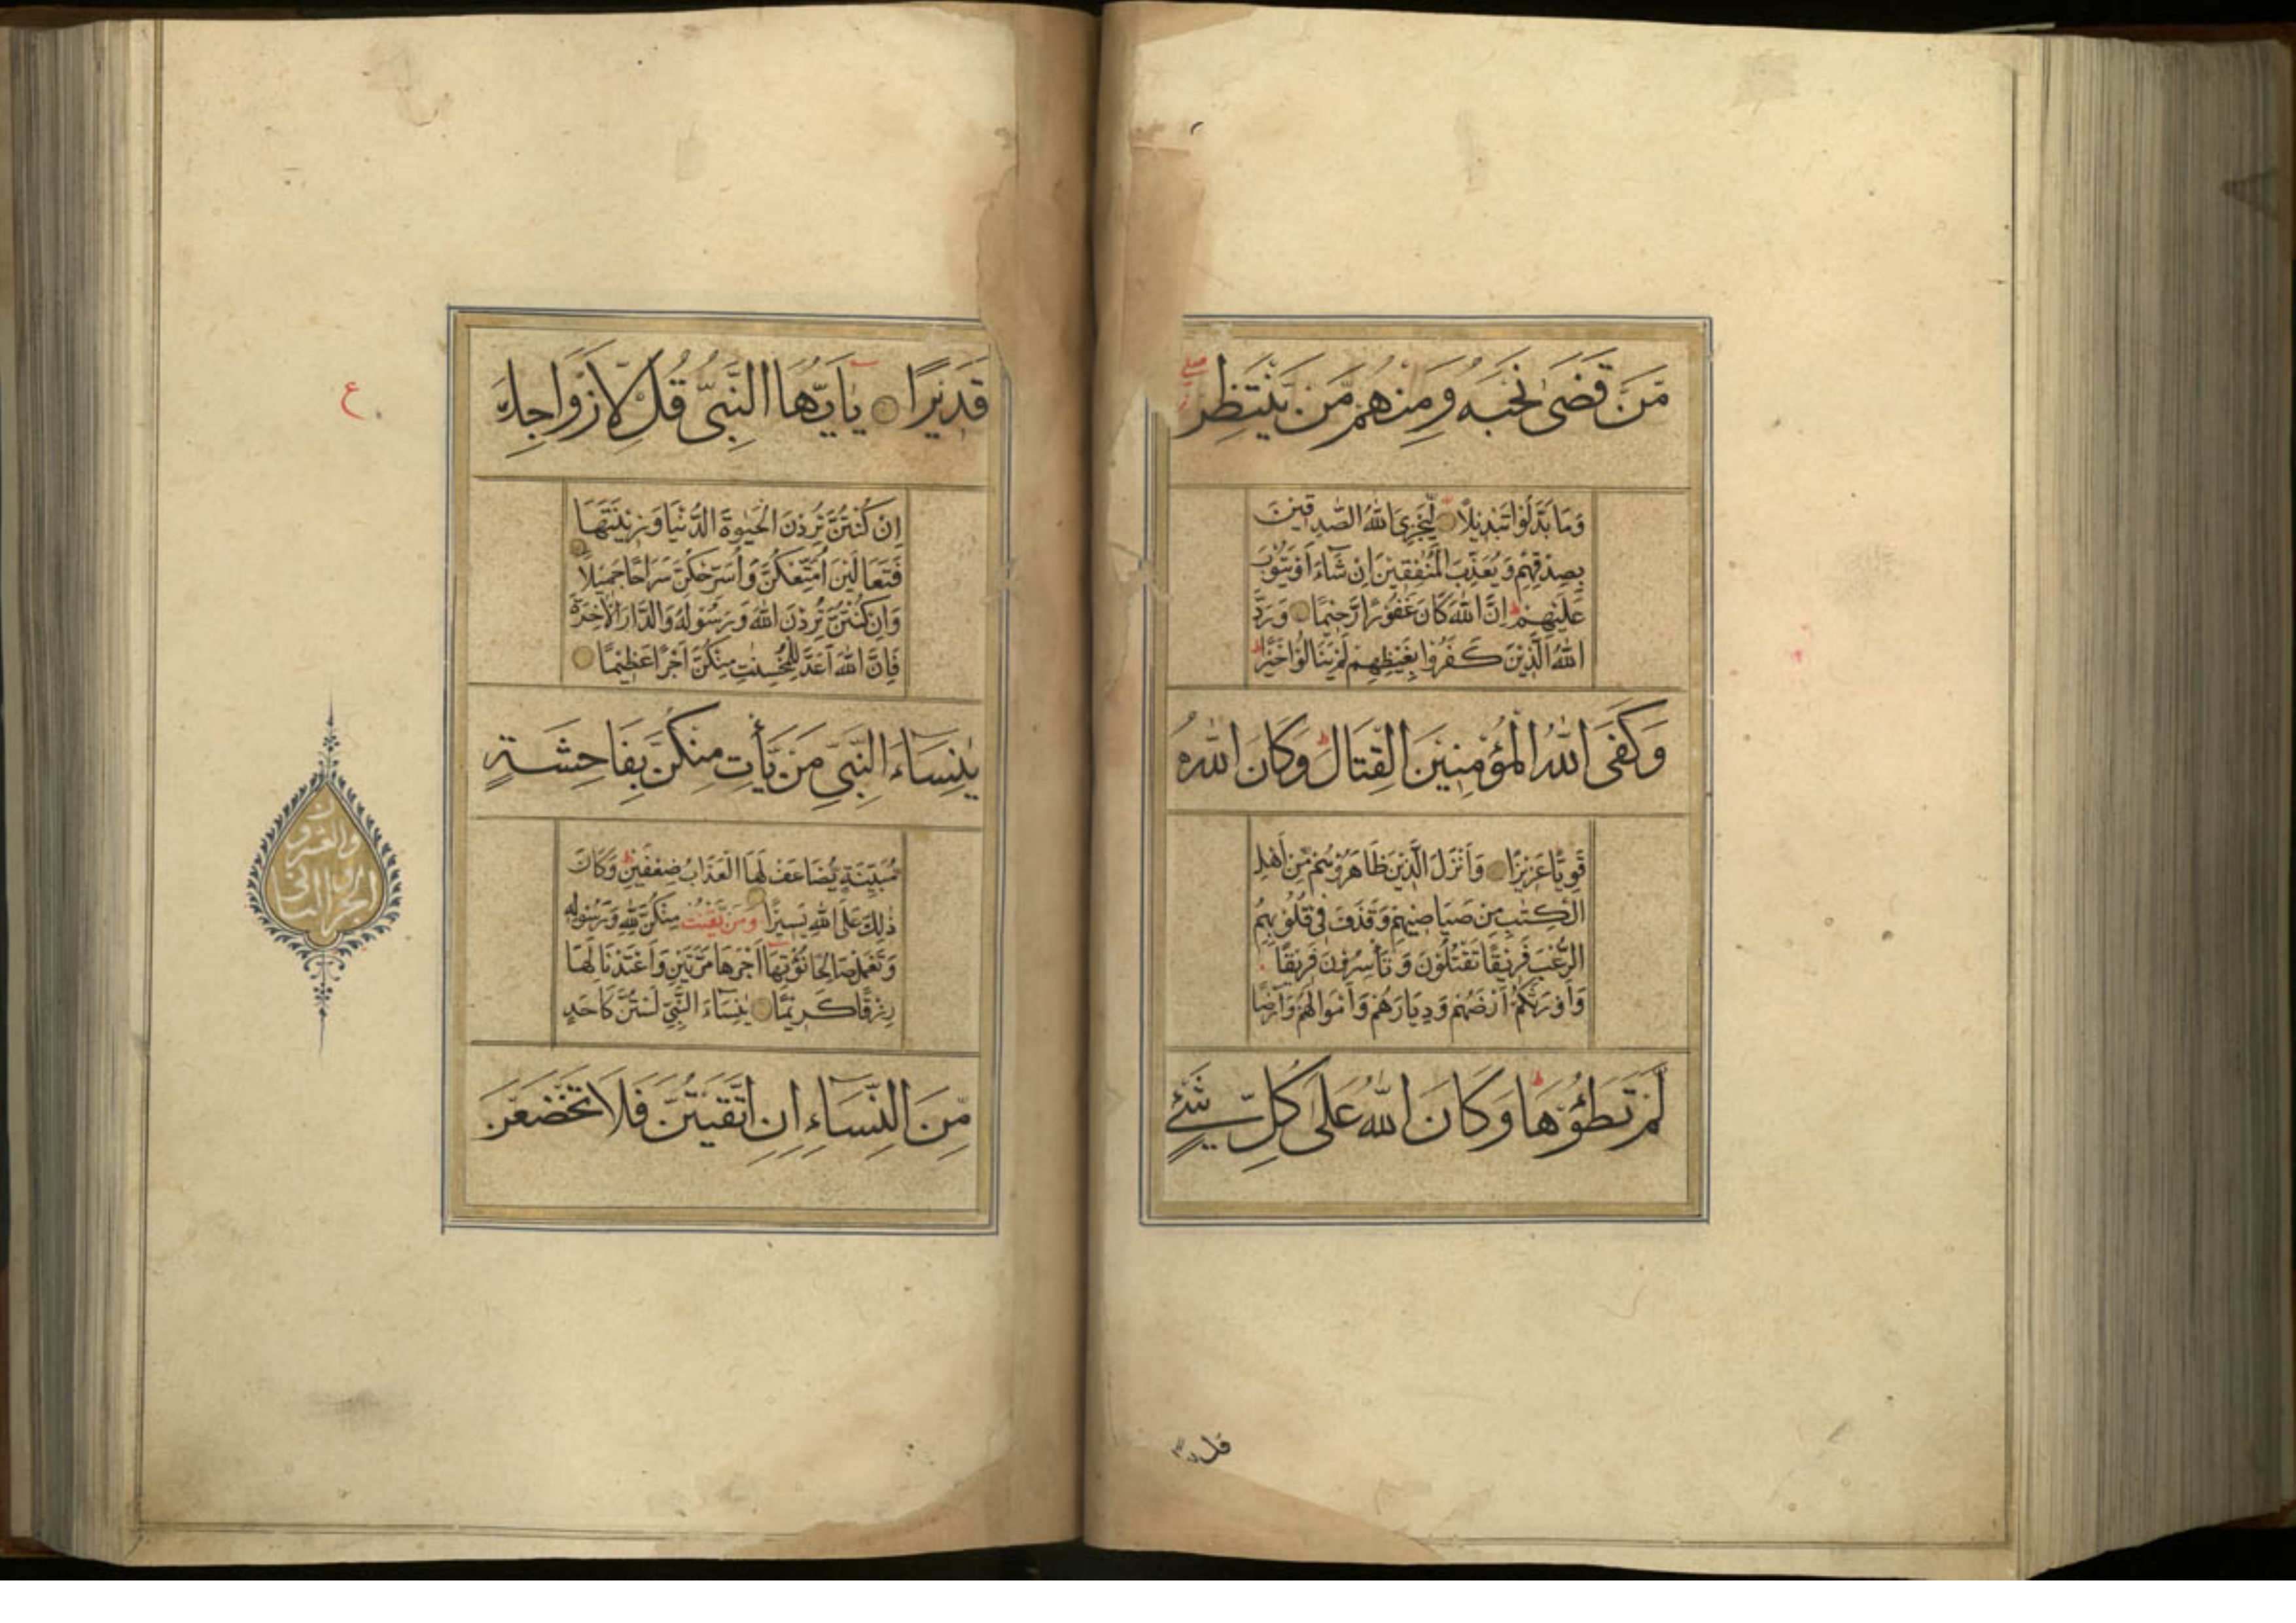 مَّنْ قَضَىٰ نَحْبَهُ وَمِنْهُمْ مَّنْ يَّنْتَظِرُ
وَمَا بَدَّلُوْا تَبْدِيْلًا لِّيَجْزِيَ اللّٰهُ الصّٰدِقِيْنَ
بِصِدْقِهِمْ وَيُعَذِّبَ الْمُنٰفِقِيْنَ اِنْ شَآءَ اَوْ يَتُوْبَ
عَلَيْهِمْ ط اِنَّ اللّٰهَ كَانَ غَفُوْرًا رَّحِيْمًا وَرَدَّ
اللّٰهُ الَّذِيْنَ كَفَرُوْا بِغَيْظِهِمْ لَمْ يَنَالُوْا خَيْرًا ط
وَكَفَى اللّٰهُ الْمُؤْمِنِيْنَ الْقِتَالَ ط وَكَانَ اللّٰهُ
قَوِيًّا عَزِيْزًا وَاَنْزَلَ الَّذِيْنَ ظَاهَرُوْهُمْ مِّنْ اَهْلِ
الْكِتٰبِ مِنْ صَيَاصِيْهِمْ وَقَذَفَ فِيْ قُلُوْبِهِمُ
الرُّعْبَ فَرِيْقًا تَقْتُلُوْنَ وَتَأْسِرُوْنَ فَرِيْقًا
وَاَوْرَثَكُمْ اَرْضَهُمْ وَدِيَارَهُمْ وَاَمْوَالَهُمْ وَاَرْضًا
لَّمْ تَطَئُوْهَا ط وَكَانَ اللّٰهُ عَلٰى كُلِّ شَيْءٍ
قَدِيْرًا يٰاَيُّهَا النَّبِيُّ قُلْ لِّاَزْوَاجِكَ
اِنْ كُنْتُنَّ تُرِدْنَ الْحَيٰوةَ الدُّنْيَا وَزِيْنَتَهَا
فَتَعَالَيْنَ اُمَتِّعْكُنَّ وَاُسَرِّحْكُنَّ سَرَاحًا جَمِيْلًا
وَاِنْ كُنْتُنَّ تُرِدْنَ اللّٰهَ وَرَسُوْلَهُ وَالدَّارَ الْاٰخِرَةَ
فَاِنَّ اللّٰهَ اَعَدَّ لِلْمُحْسِنٰتِ مِنْكُنَّ اَجْرًا عَظِيْمًا
يٰنِسَآءَ النَّبِيِّ مَنْ يَّأْتِ مِنْكُنَّ بِفَاحِشَةٍ
مُّبَيِّنَةٍ يُّضَاعَفْ لَهَا الْعَذَابُ ضِعْفَيْنِ ط وَكَانَ
ذٰلِكَ عَلَى اللّٰهِ يَسِيْرًا وَمَنْ يَّقْنُتْ مِنْكُنَّ لِلّٰهِ وَرَسُوْلِهِ
وَتَعْمَلْ صَالِحًا نُّؤْتِهَا اَجْرَهَا مَرَّتَيْنِ وَاَعْتَدْنَا لَهَا
رِزْقًا كَرِيْمًا يٰنِسَآءَ النَّبِيِّ لَسْتُنَّ كَاَحَدٍ
مِّنَ النِّسَآءِ اِنِ اتَّقَيْتُنَّ فَلَا تَخْضَعْنَ
ع
الجزء الثانى
والعشرون